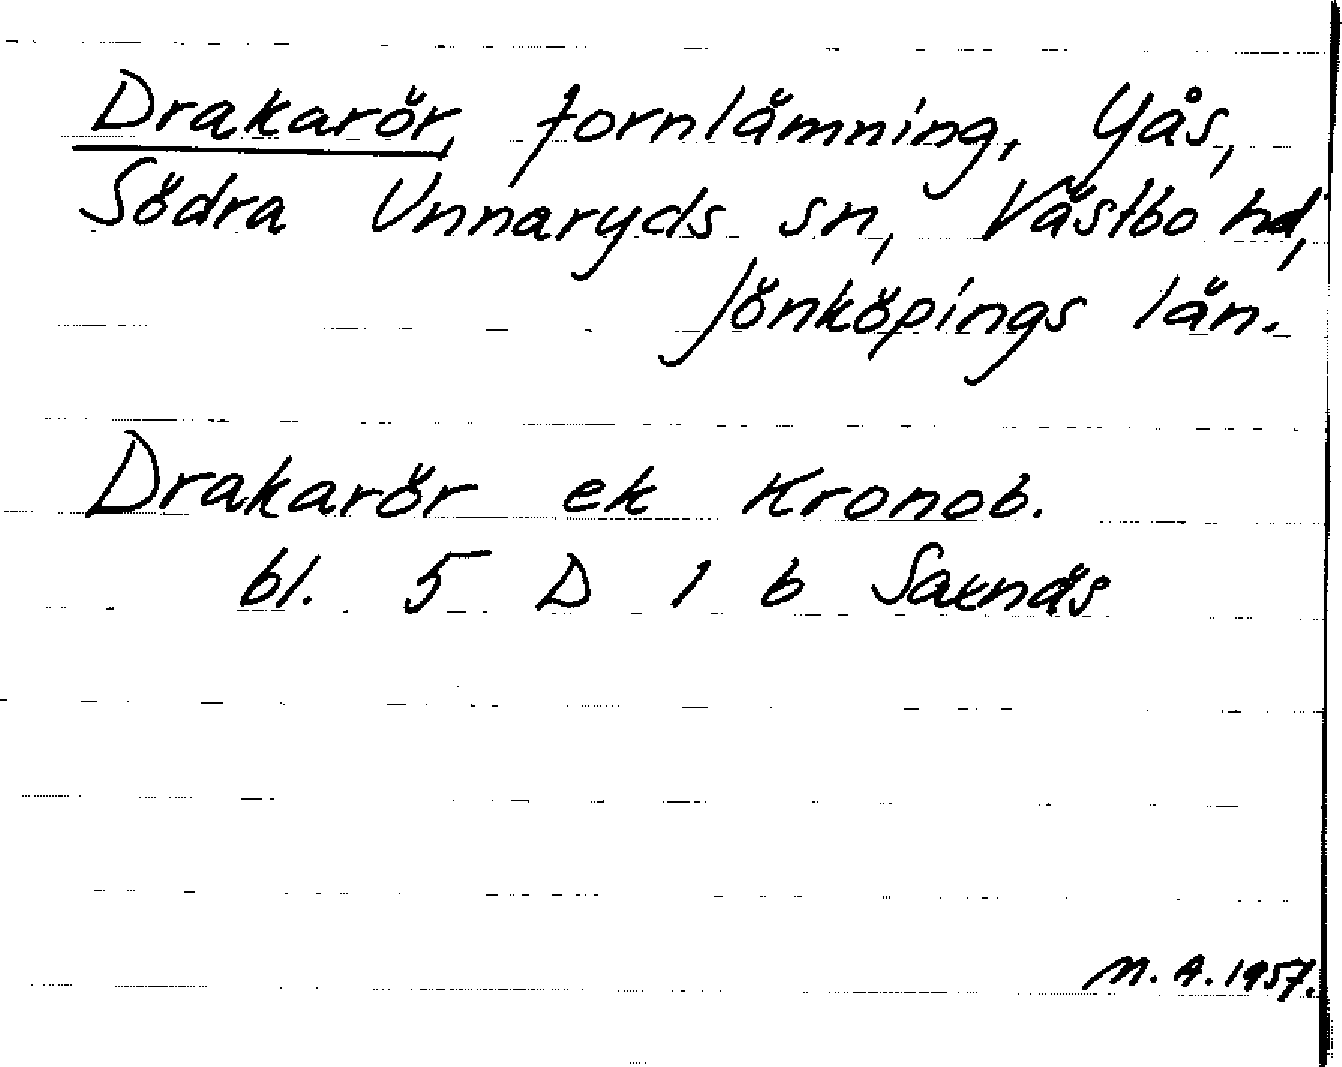 Drakarör, fornlämning, Yås,
Södra Unnaryds sn, Västbo hd,
Jönköpings län.
Drakarör ek Kronob.
bl. 5 D 1 b Saxnäs
M. A. 1957.